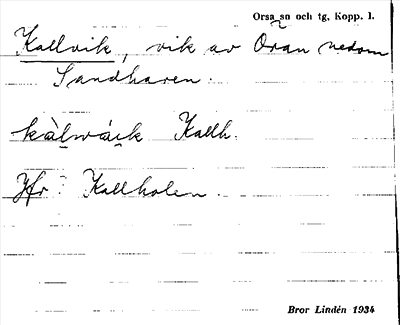 Orsa sn och tg, Kopp. l.
Kallvik, vik av Oran nedom
Sandharen.
kàlwáik Kallh.
Jfr Kallholen.
Bror Lindén 1934